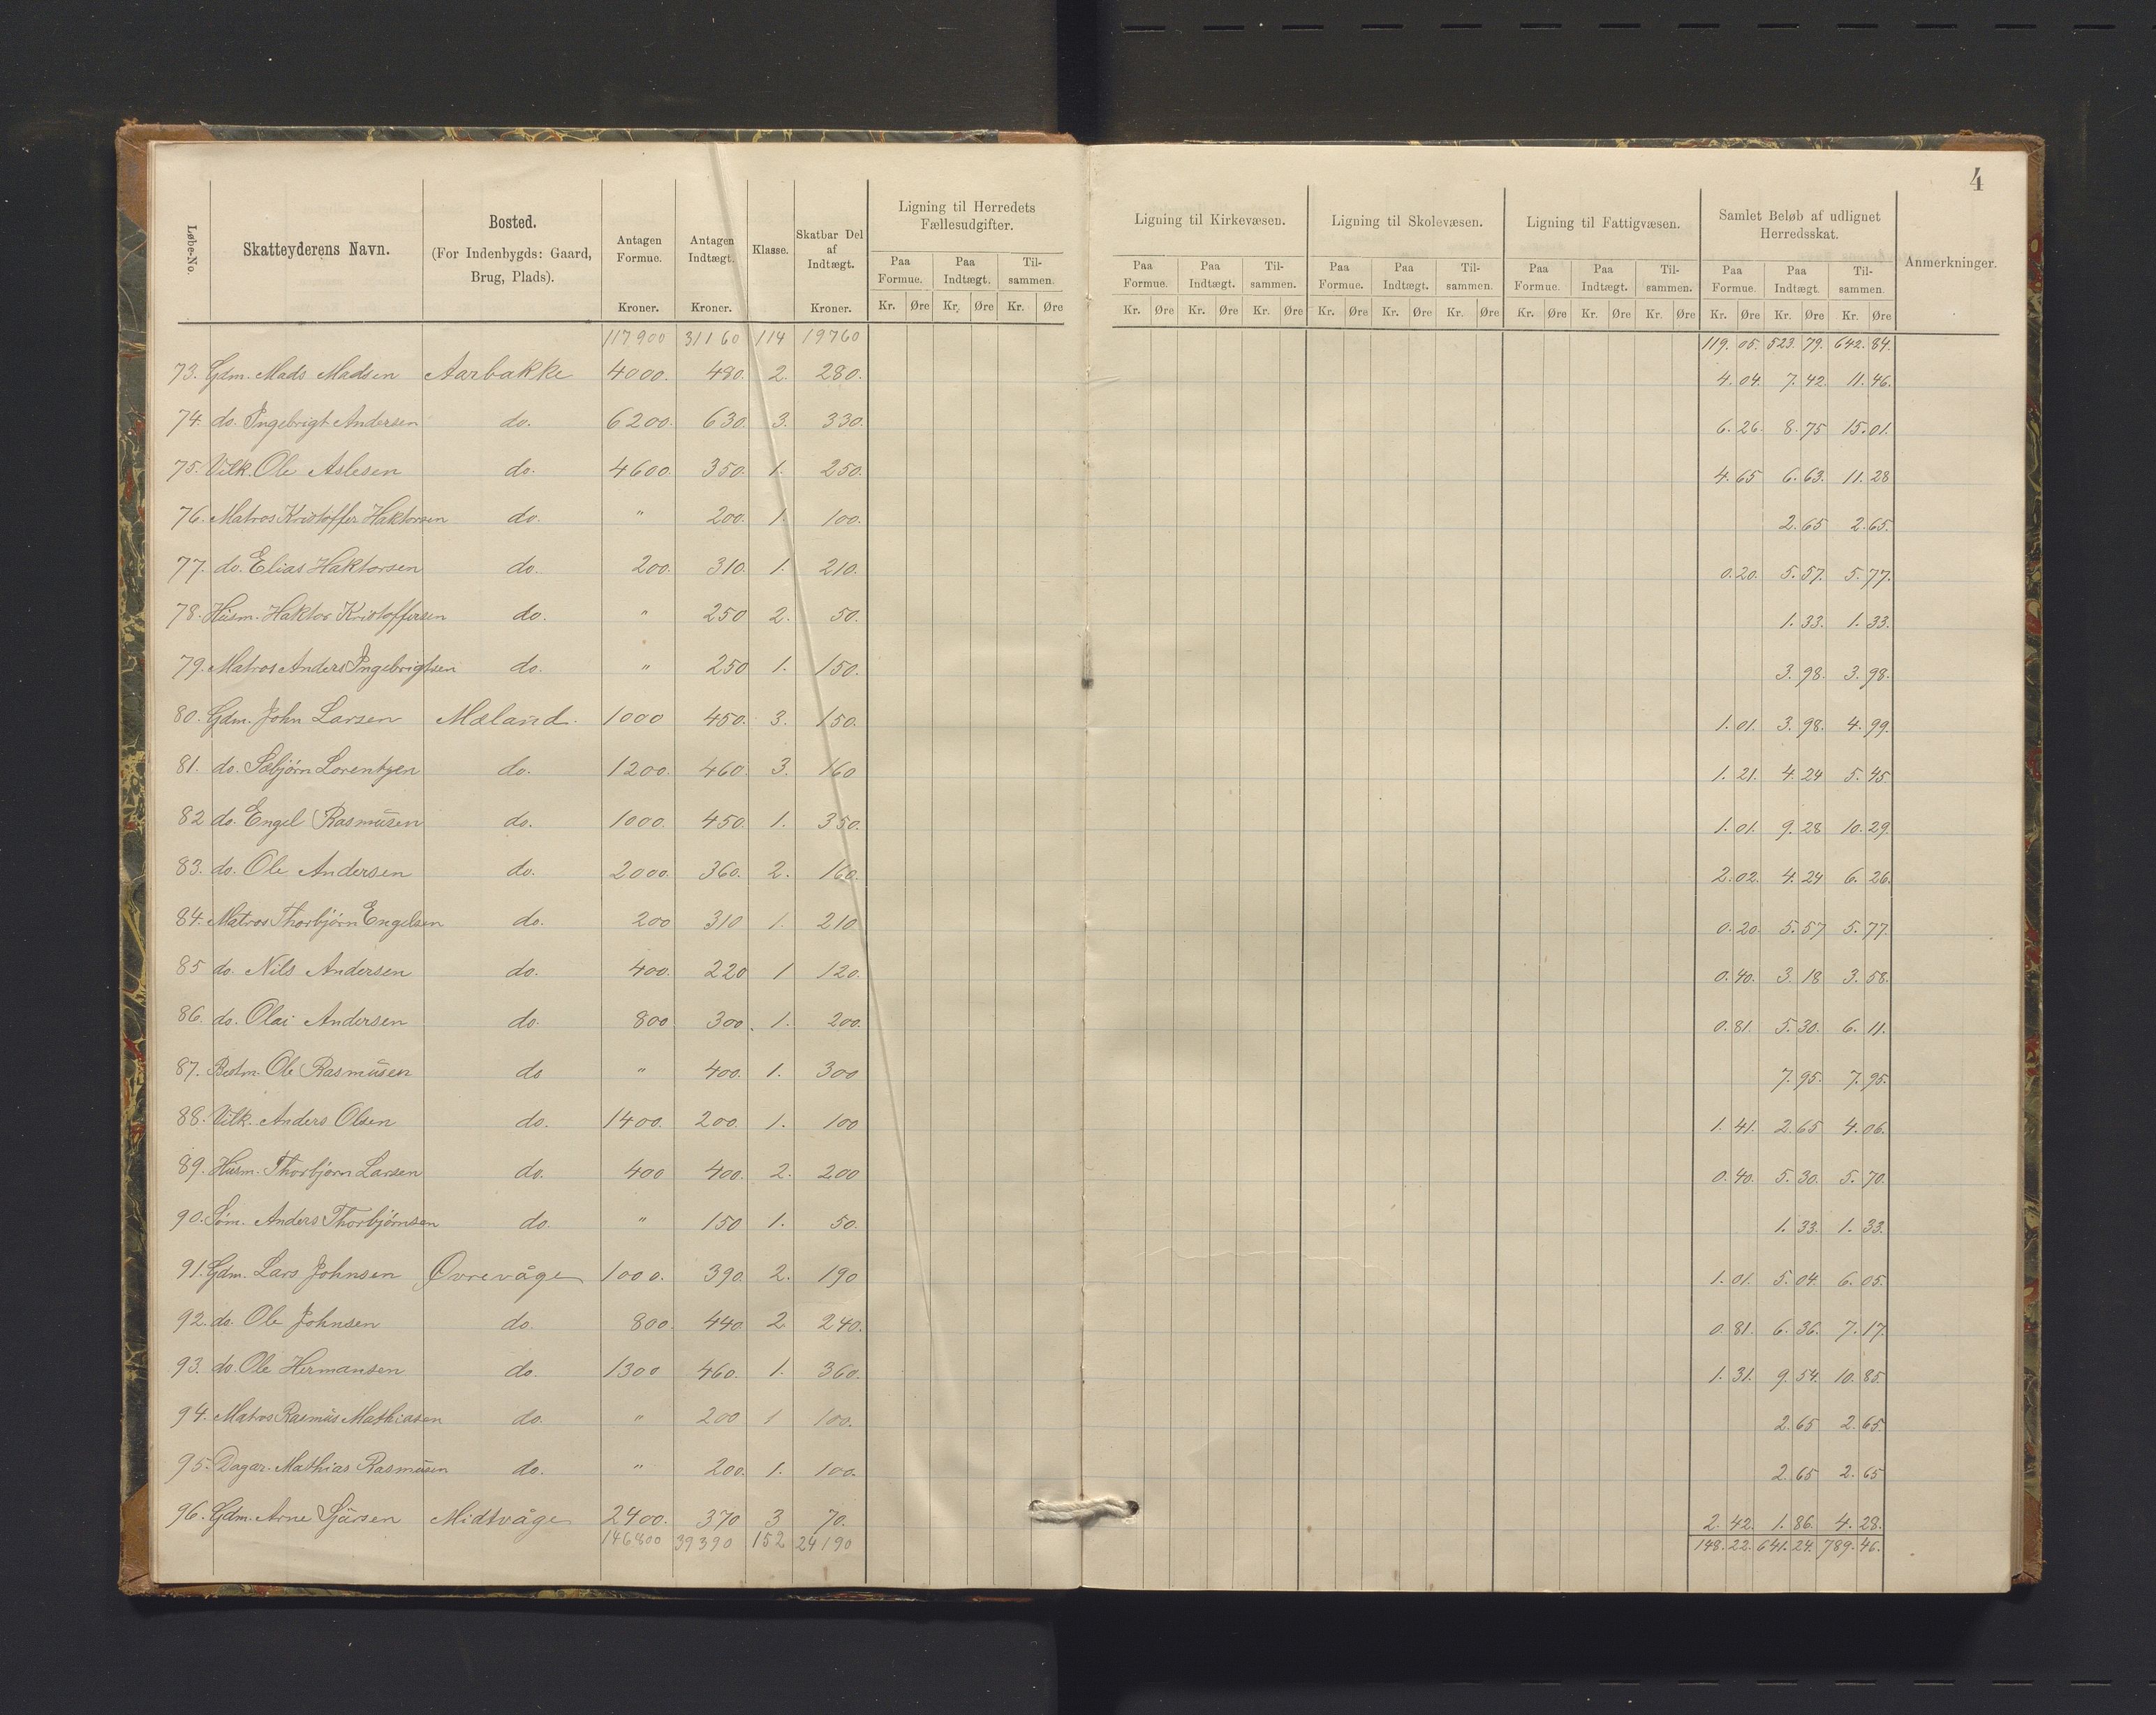 4
Løbe-No. Skatteyderens Navn. Bosted. (For Indenbygds: Gaard, Brug, Plads). Antagen Formue. Kroner. Antagen Indtægt. Kroner. Klasse. Skatbar Del af Indtægt. Kroner. Ligning til Herredets Fællesudgifter. Paa Formue. Kr. Øre Paa Indtægt. Kr. Øre Til-sammen. Kr. Øre Ligning til Kirkevæsen. Paa Formue. Kr. Øre Paa Indtægt. Kr. Øre Til-sammen. Kr. Øre Ligning til Skolevæsen. Paa Formue. Kr. Øre Paa Indtægt. Kr. Øre Til-sammen. Kr. Øre Ligning til Fattigvæsen. Paa Formue. Kr. Øre Paa Indtægt. Kr. Øre Til-sammen. Kr. Øre Samlet Beløb af udlignet Herredsskat. Paa Formue. Kr. Øre Paa Indtægt. Kr. Øre Til-sammen. Kr. Øre Anmerkninger.
117900 31160 114 19760 119. 05. 523. 79. 642. 84.
73. Gdm. Mads Madsen Aarbakke 4000. 480. 2. 280. 4. 04. 7. 42. 11. 46.
74. do. Ingebrigt Andersen do. 6200. 630. 3. 330. 6. 26. 8. 75 15. 01.
75. Vilk. Ole Aslesen do. 4600. 350. 1. 250. 4. 65 6. 63. 11. 28
76. Matros Kristoffer Haktorsen do. " 200. 1. 100. 2. 65 2. 65.
77. do. Elias Haktorsen do. 200. 310. 1. 210. 0. 20. 5. 57. 5. 77.
78. Husm. Haktor Kristoffersen do. " 250 2. 50. 1. 33. 1. 33.
79. Matros Anders Ingebrigtsen do. " 250 1. 150. 3. 98. 3. 98.
80. Gdm. John Larsen Mæland. 1000 450. 3. 150. 1. 01. 3. 98. 4. 99.
81. do. Sæbjørn Lorentzen do. 1200. 460. 3. 160 1. 21. 4. 24 5. 45
82 do. Engel Rasmusen do. 1000. 450. 1. 350. 1. 01. 9. 28 10. 29.
83. do. Ole Andersen do. 2000. 360. 2. 160. 2. 02. 4. 24 6. 26.
84. Matros Thorbjørn Engelsen do. 200 310 1. 210 0. 20. 5. 57 5. 77.
85 do. Nils Andersen do. 400. 220 1 120. 0. 40. 3. 18 3. 58.
86. do. Olai Andersen do. 800. 300. 1. 200. 0. 81. 5. 30. 6. 11.
87. Bestm. Ole Rasmusen do " 400. 1. 300 7. 95. 7. 95.
88. Vilk. Anders Olsen do. 1400. 200. 1. 100 1. 41. 2. 65 4. 06.
89. Husm. Thorbjørn Larsen do. 400 400. 2. 200 0. 40. 5. 30. 5. 70.
90. Søm. Anders Thorbjørnsen do. " 150 1. 50. 1. 33. 1. 33.
91. Gdm. Lars Johnsen Øvrevåge 1000. 390. 2. 190 1. 01. 5. 04. 6. 05.
92. do. Ole Johnsen do. 800. 440. 2. 240. 0. 81. 6. 36. 7. 17.
93. do. Ole Hermansen do. 1300 460. 1. 360. 1. 31. 9. 54. 10. 85.
94. Matros Rasmus Mathiasen do. " 200 1 100. 2. 65 2. 65
95. Dagar. Mathias Rasmusen do. " 200. 1. 100. 2. 65 2. 65
96. Gdm. Arne Sjursen Midtvåge 2400. 370 3 70. 2. 42. 1. 86. 4. 28.
146800 39390 152 24190 148. 22. 641. 24. 789. 46.